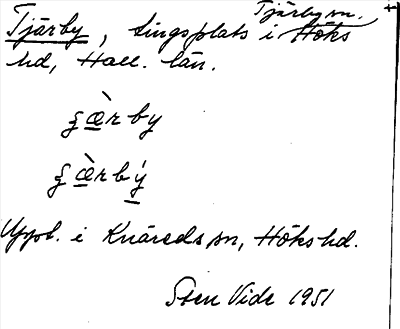 Tjärby, tingsplats i Tjärby sn. Höks
hd, Hall. län.
ʒæ̀rby
ʒæ̀rbý
Uppt. i Knäreds sn, Höks hd.
Sten Vide 1951